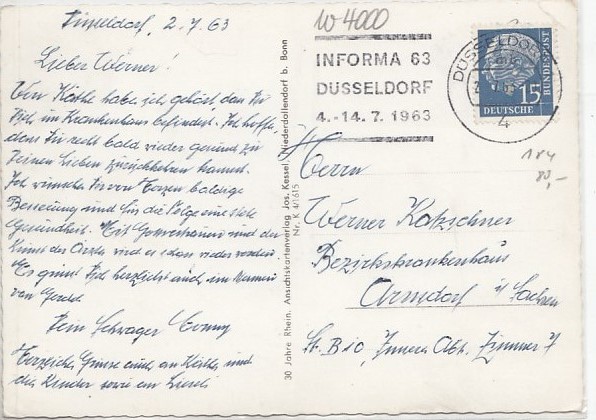 Düsseldorf, 2.7.63
Lieber Werner!
Von Käthe habe ich gehört, dass Du
Dich im Krankenhaus befindest. Ich hoffe,
dass Du recht bald wieder gesund zu
Deinen Lieben zurückkehren kannst.
Ich wünsche Dir von Herzen baldige
Besserung und für die Folge eine stete
Gesundheit. Mit Gottvertrauen und der
Kunst der Ärzte wird es schon wieder werden.
Es grüsst Dich herzlichst auch im Namen
von Gerda
Dein Schwager Conny
Herzliche Grüsse auch an Käthe und
die Kinder sowie an Liesel
30 Jahre Rhein. Ansichtskartenverlag Jos. Kessel, Niederdollendorf b. Bonn
Nr. K 4/1615
W 4000
INFORMA 63
DÜSSELDORF
4.-14.7.1963
DÜSSELDORF
4
15
DEUTSCHE
BUNDESPOST
184
80,-
Herrn
Werner Kotzschner
Bezirkskrankenhaus
Arnsdorf i/ Sachsen
St. B 10, Innere Abt. Zimmer 7